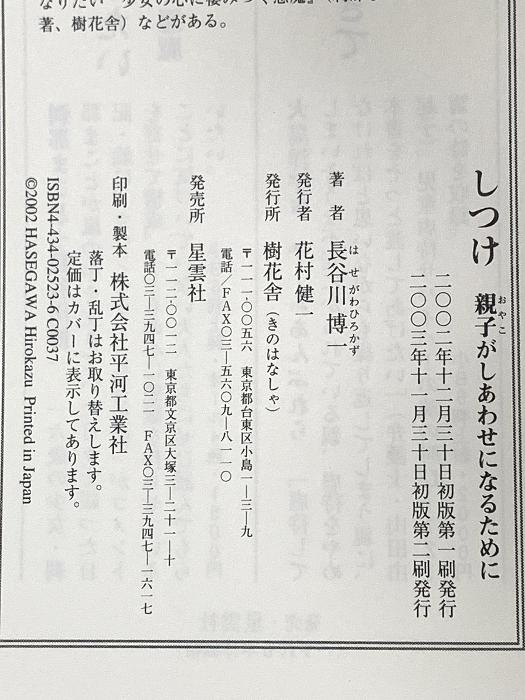 著、樹花舎）などがある。
しつけ 親子がしあわせになるために
おやこ
二〇〇二年十二月三十日初版第一刷発行
二〇〇三年十一月三十日初版第二刷発行
著 者 長谷川博一
はせがわひろかず
発行者 花村健一
発行所 樹花舎（きのはなしゃ）
〒一一一-〇〇五六 東京都台東区小島一―三―九
電話／ＦＡＸ〇三―五六〇九―八一一〇
発売所 星雲社
〒一一二-〇〇一二 東京都文京区大塚三―二十一―十
電話〇三―三九四七―一〇二一 ＦＡＸ〇三―三九四七―一六一七
印刷・製本 株式会社平河工業社
落丁・乱丁はお取り替えします。
定価はカバーに表示してあります。
ISBN4-434-02523-6 C0037
©2002 HASEGAWA Hirokazu Printed in Japan